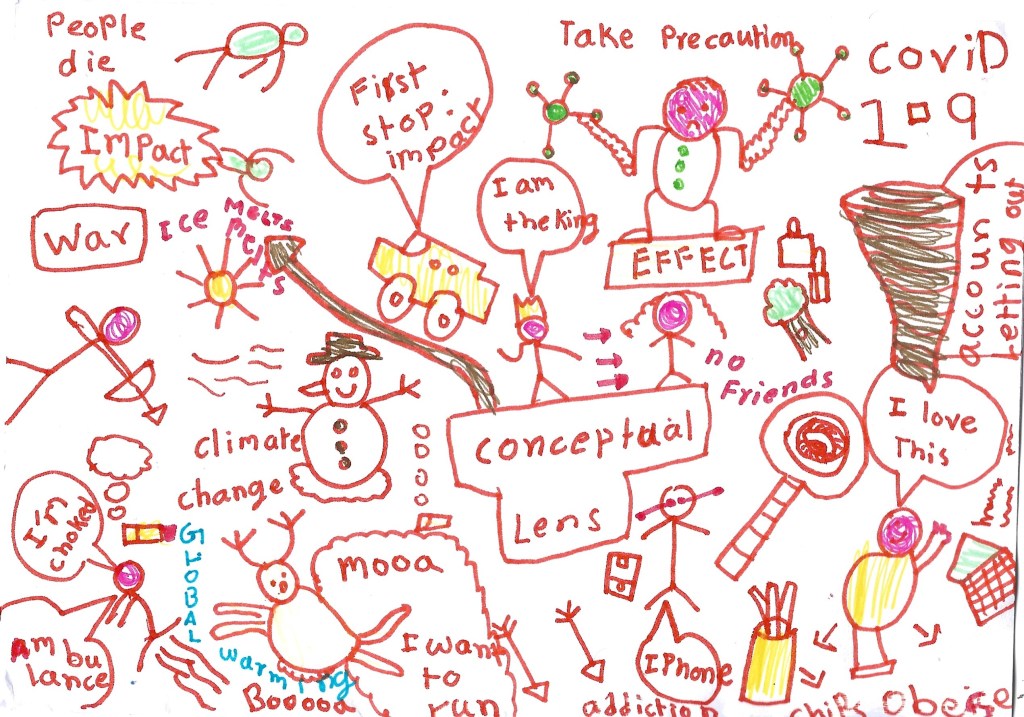 People
die
Impact
First
stop:
impact
Take Precaution
COVID
19
I am
the king
accounts
letting out
War
ICE MELTS
MELTS
EFFECT
no
Friends
climate
change
conceptual
Lens
I love
This
I'm
choked
GLOBAL
warming
mooa
I want
to
run
Booooa
Ambu
lance
IPhone
addiction
chips
Obeise